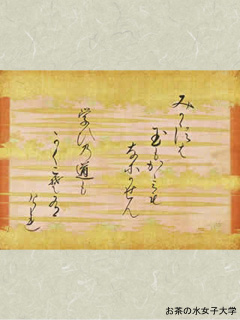 みかゝすは
玉もかゝみも
なにかせん
学ひ乃道も
かくこそ有
けれ
お茶の水女子大学